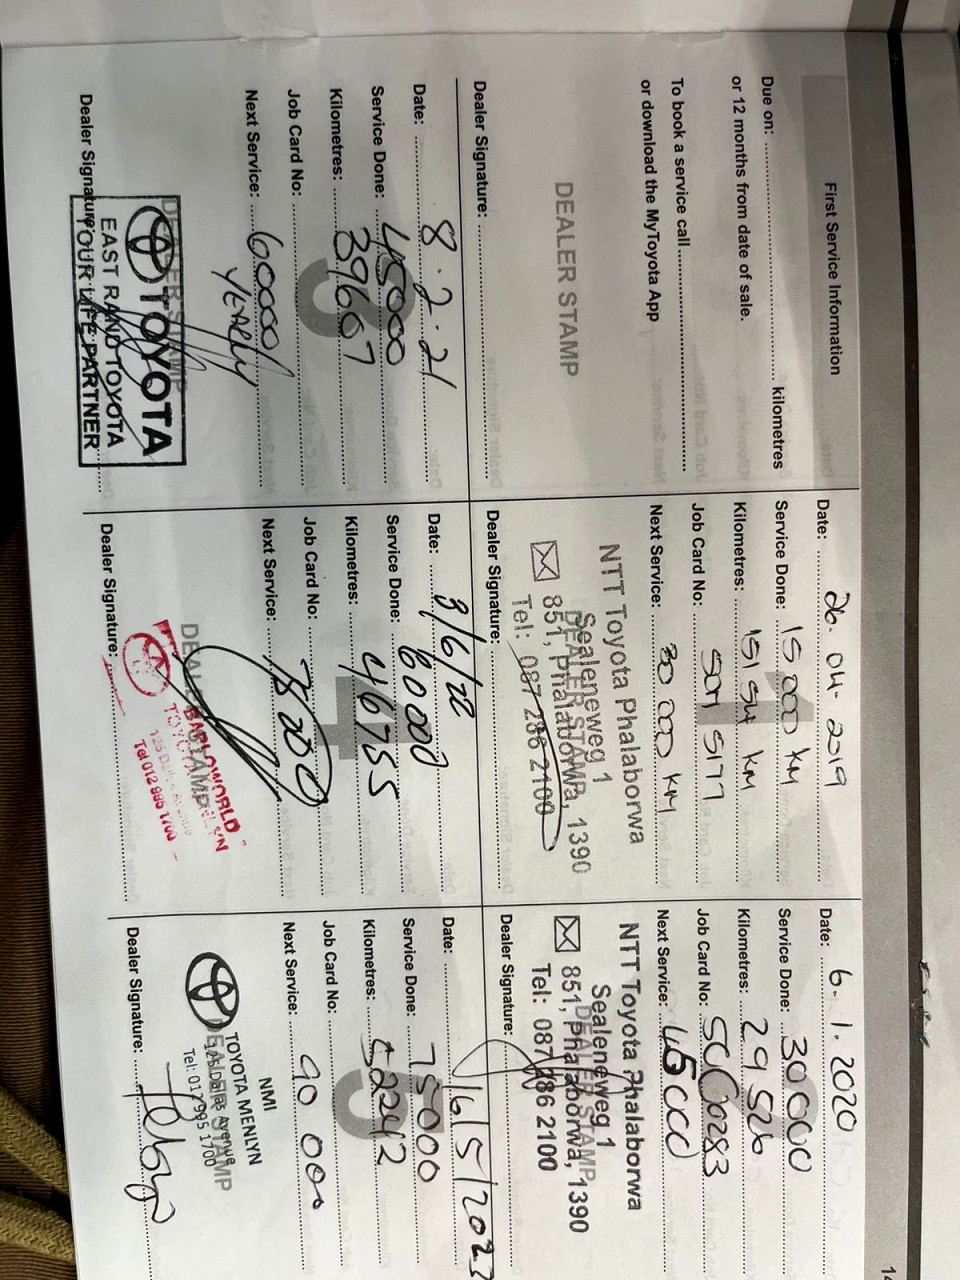 First Service Information
Due on: kilometres
or 12 months from date of sale.
To book a service call
or download the MyToyota App
DEALER STAMP
Dealer Signature:
Date: 26. 04. 2019
Service Done: 15 000 KM
Kilometres: 15154 KM
Job Card No:
Next Service: 30 000 KM
NTT Toyota Phalaborwa
Sealeneweg 1
DEALER STAMP
851, Phalaborwa, 1390
Tel: 087 286 2100
Dealer Signature:
Date: 6. 1. 2020
Service Done: 30000
Kilometres: 29526
Job Card No:
Next Service: 45000
NTT Toyota Phalaborwa
Sealeneweg 1
DEALER STAMP
851, Phalaborwa, 1390
Tel: 087 286 2100
Dealer Signature:
Date: 8.2.21
Service Done: 45000
Kilometres: 39607
Job Card No:
Next Service: 60000/
YEARLY
DEALER STAMP
TOYOTA
EAST RAND TOYOTA
YOUR LIFE PARTNER
Dealer Signature:
Date: 3/6/22
Service Done: 60000
Kilometres: 46755
Job Card No:
Next Service: 75000
DEALER STAMP
BARLOWORLD
TOYOTA MENLYN
Tel 012 995 1700
Dealer Signature:
Date: 16/5/2023
Service Done: 75000
Kilometres: 52242
Job Card No:
Next Service: 90 000
NMI
TOYOTA MENLYN
DEALER STAMP
Dallas Avenue
Tel: 012 995 1700
Dealer Signature: